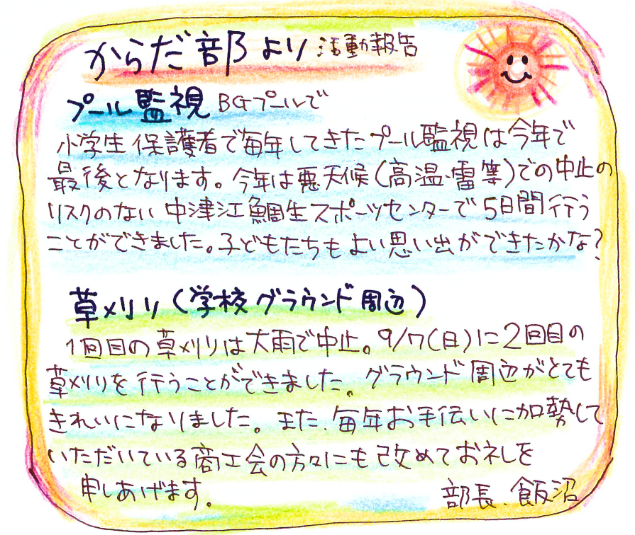 からだ部より 活動報告
プール監視 BGプールで
小学生保護者で毎年してきたプール監視は今年で
最後となります。今年は悪天候(高温・雷等)での中止の
リスクのない中津江鯛生スポーツセンターで5日間行う
ことができました。子どもたちもよい思い出ができたかな?
草メリリ(学校グラウンド周辺)
1回目の草メリリは大雨で中止。9/7(日)に2回目の
草メリリを行うことができました。グラウンド周辺がとても
きれいになりました。また、毎年お手伝いに加勢して
いただいている商工会の方々にも改めてお礼を
申しあげます。 部長 飯沼